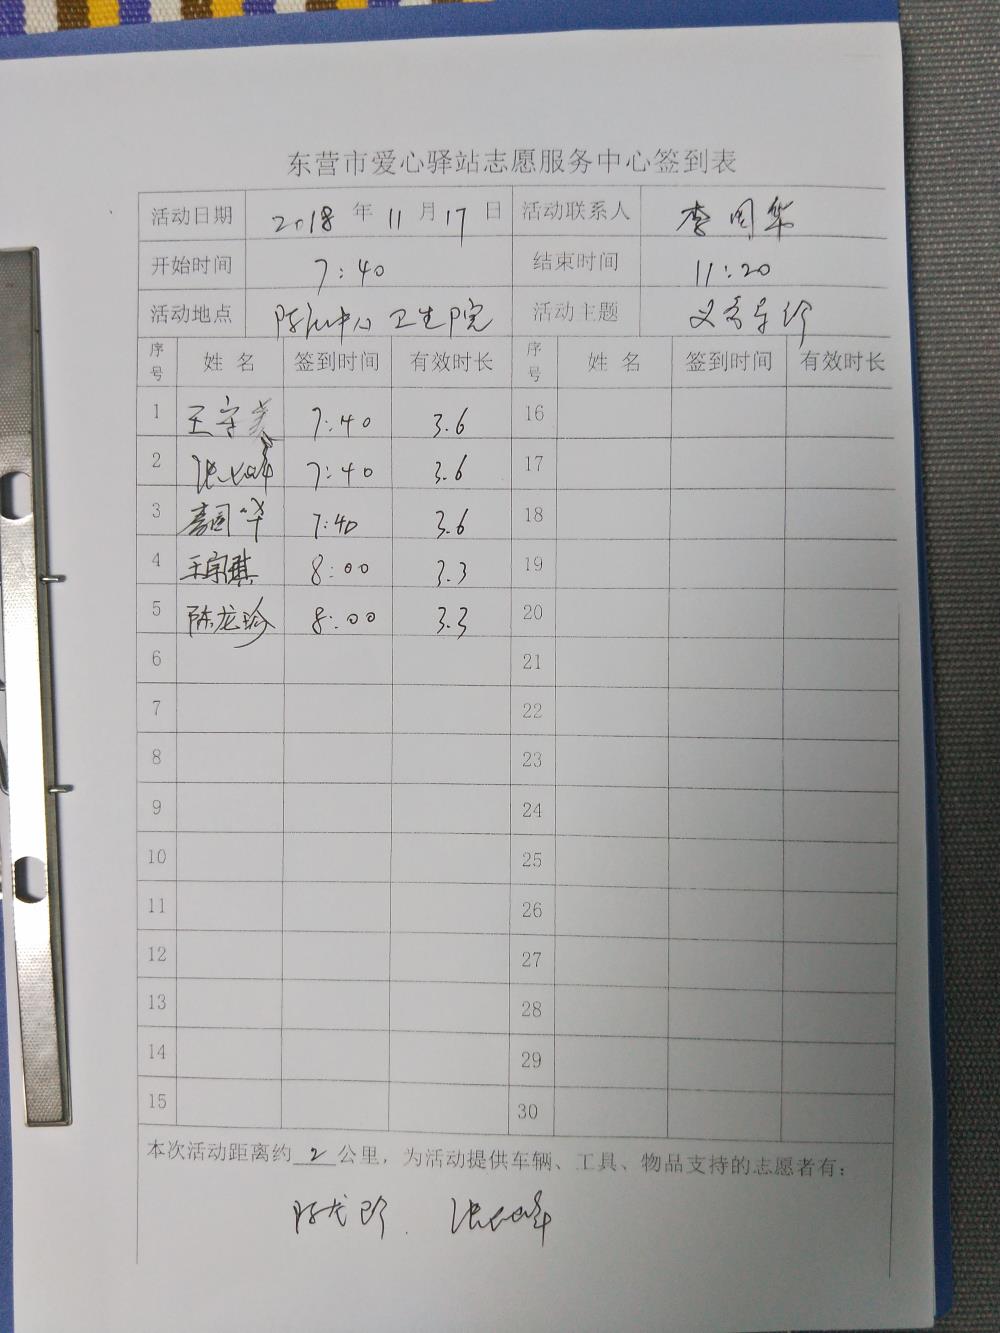 东营市爱心驿站志愿服务中心签到表
活动日期 2018 年 11 月 17 日 活动联系人
开始时间 7:40 结束时间 11:20
活动地点 中心卫生院 活动主题 义务导诊
序号 姓 名 签到时间 有效时长 序号 姓 名 签到时间 有效时长
1 王守美 7:40 3.6 16
2 7:40 3.6 17
3 7:40 3.6 18
4 王宗騏 8:00 3.3 19
5 陈龙珍 8:00 3.3 20
6 21
7 22
8 23
9 24
10 25
11 26
12 27
13 28
14 29
15 30
本次活动距离约 2 公里，为活动提供车辆、工具、物品支持的志愿者有：
陈龙珍.